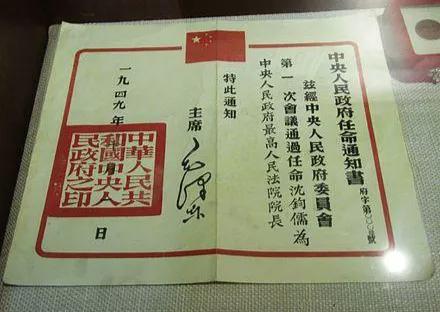 中央人民政府任命通知書
府字第〇〇5號
茲經中央人民政府委員會
第一次會議通過任命沈鈞儒為
中央人民政府最高人民法院院長
特此通知
主席
毛澤東
一九四九年
日
中華人民共
和國中央人
民政府之印